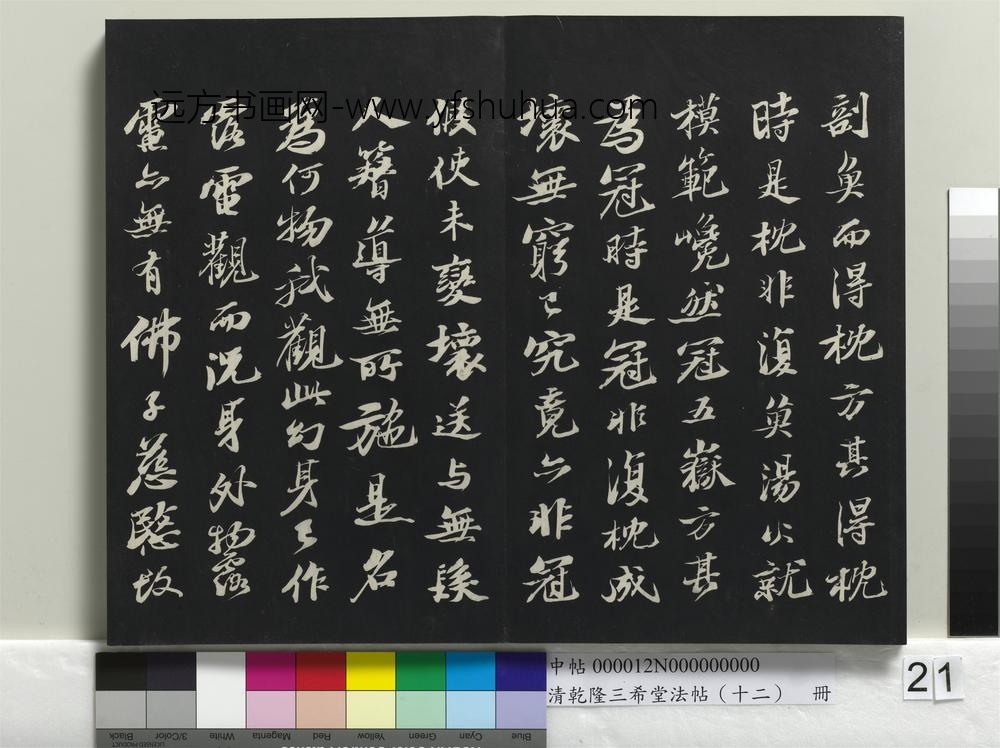 剖魚而得枕方甚得枕
時是枕非復魚湯火就
模範巉然冠五嶽方其
為冠時是冠非復枕成
壞無窮已究竟亦非冠
假使未變壞送与無髮
人簪導無所施是名
為何物我觀此幻身已作
露電觀而況身外物露
電亦無有佛子慈愍故
远方书画网-www.yfshuhua.com
中帖 000012N000000000
清乾隆三希堂法帖（十二） 冊
21
Black
3/Color
White
Magenta
Red
Yellow
Green
Cyan
Blue